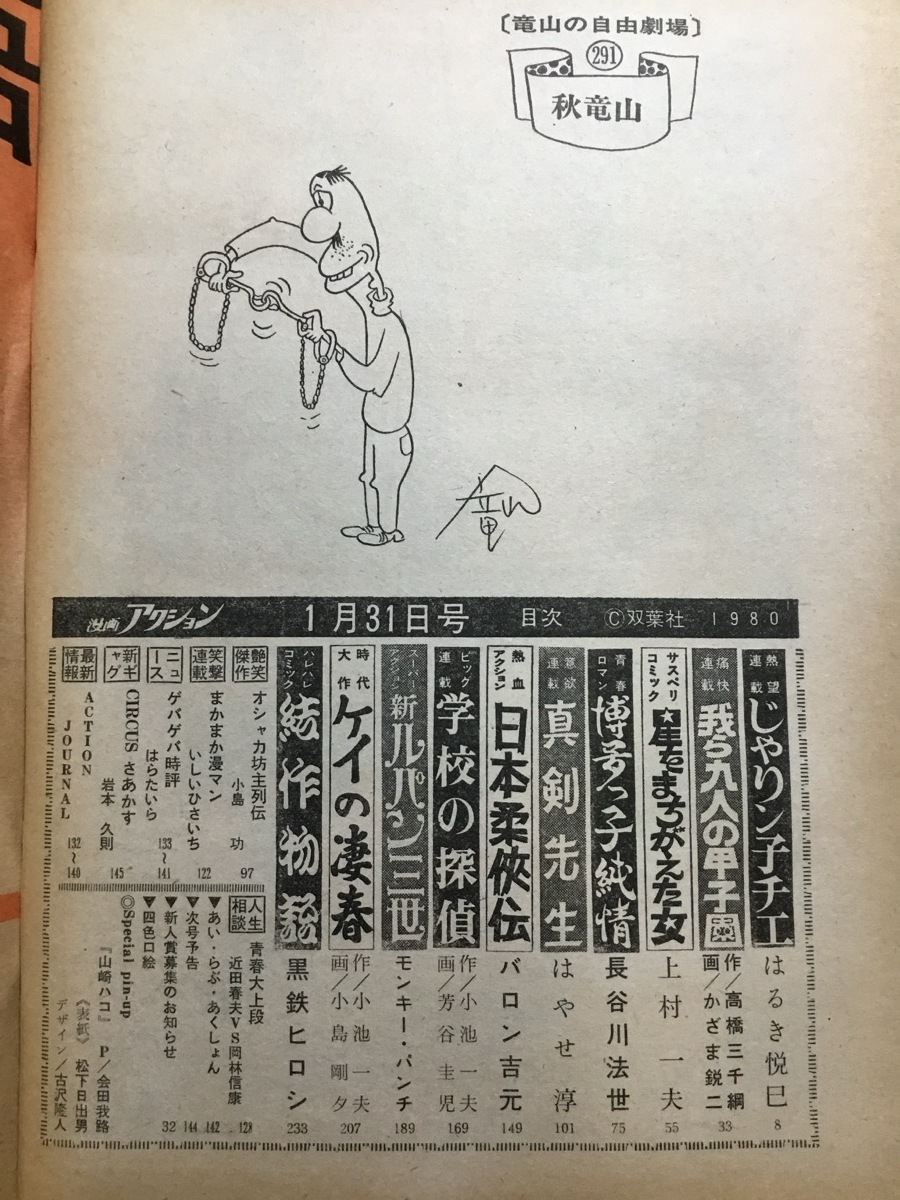 〔竜山の自由劇場〕
291
秋竜山
漫画アクション 1月31日号 目次 ©双葉社 1980
熱望連載 じゃりン子チエ はるき悦巳 8
痛快連載 我ら九人の甲子園 作/高橋三千綱 画/かざま鋭二 33
サスペリコミック ★星をまちがえた女 上村一夫 55
青春ロマン 博多っ子純情 長谷川法世 75
意欲連載 真剣先生 はやせ淳 101
熱血アクション 日本柔侠伝 バロン吉元 149
ビッグ連載 学校の探偵 作/小池一夫 画/芳谷圭児 169
スーパーアクション 新ルパン三世 モンキー・パンチ 189
時代大作 ケイの凄春 作/小池一夫 画/小島剛夕 207
ハレハレコミック 結作物語 黒鉄ヒロシ 233
艶笑傑作 オシャカ坊主列伝 小島 功 97
笑撃連載 まかまか漫マン いしいひさいち 122
ニュース ゲバゲバ時評 はらたいら 133〜141
新ギャグ CIRCUS さあかす 岩本 久則 145
最新情報 ACTION JOURNAL 132〜140
人生相談 青春大上段 近田春夫VS岡林信康 128
▼あい・らぶ・あくしょん 142
▼次号予告 144
▼新人賞募集のお知らせ
▼四色口絵 32
◎Special pin-up
『山崎ハコ』 P/会田我路
《表紙》 松下日出男
デザイン/古沢隆人